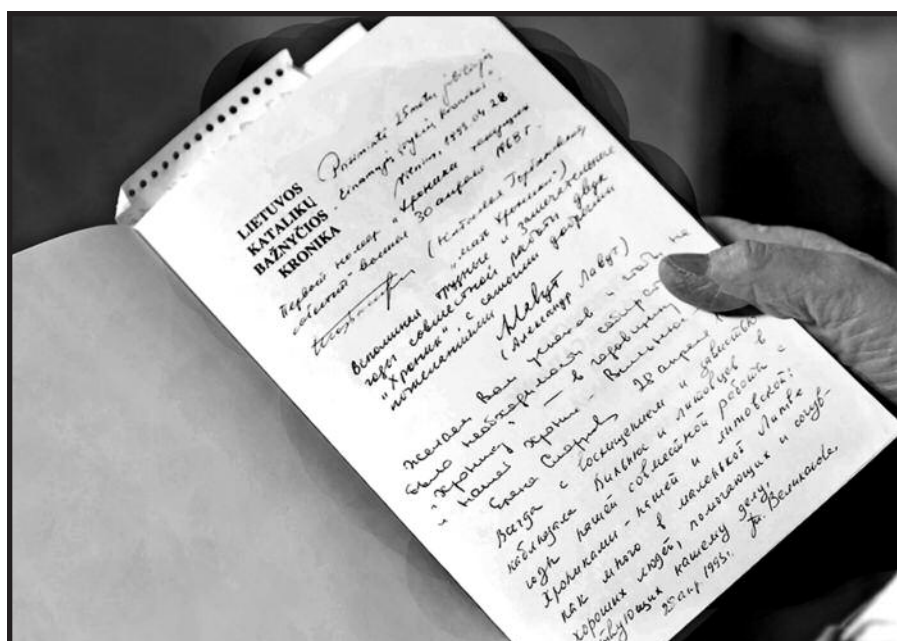 Prisiminti 25 metų jubiliejų
Einamųjų įvykių Kronikos.
Vilnius, 1993.04.28
LIETUVOS
KATALIKŲ
BAŽNYČIOS
KRONIKA
Первый номер "Хроники текущих
событий" вышел 30 апреля 1968 г.
(Наталья Горбаневская,
"мать Хроники")
Вспоминая трудные и замечательные
годы совместной работы двух
"Хроник", с самыми добрыми
пожеланиями Лавут
(Александр Лавут)
желаем вам успехов и чтоб не
было необходимости собирать
"Хронику" — в годовщину
и нашей Хроники —
Елена Смирнова 28 апреля
Всегда с восхищением и
наблюдала Вильнюс и литовцев в
годы нашей совместной работы с
Хрониками – нашей и литовской:
как много в маленькой Литве
хороших людей, помогающих и сочув-
ствующих нашему делу.
28 апр. 1993 г. Великанова.